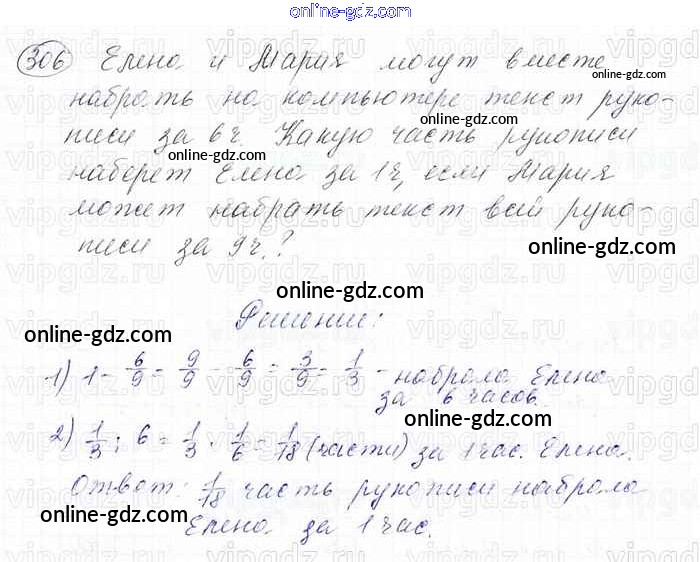 online-gdz.com
306 Елена и Мария могут вместе
online-gdz.com
набрать на компьютере текст руко-
online-gdz.com
писи за 6ч. Какую часть рукописи
online-gdz.com
наберет Елена за 1ч, если Мария
может набрать текст всей руко-
писи за 9ч.?
online-gdz.com
online-gdz.com
Решение:
online-gdz.com
1) 1 - 6/9 = 9/9 - 6/9 = 3/9 = 1/3 - набрала Елена
за 6 часов.
online-gdz.com
2) 1/3 : 6 = 1/3 · 1/6 = 1/18 (части) за 1 час. Елена.
online-gdz.com
Ответ: 1/18 часть рукописи набрала
online-gdz.com
Елена за 1 час.
online-gdz.com